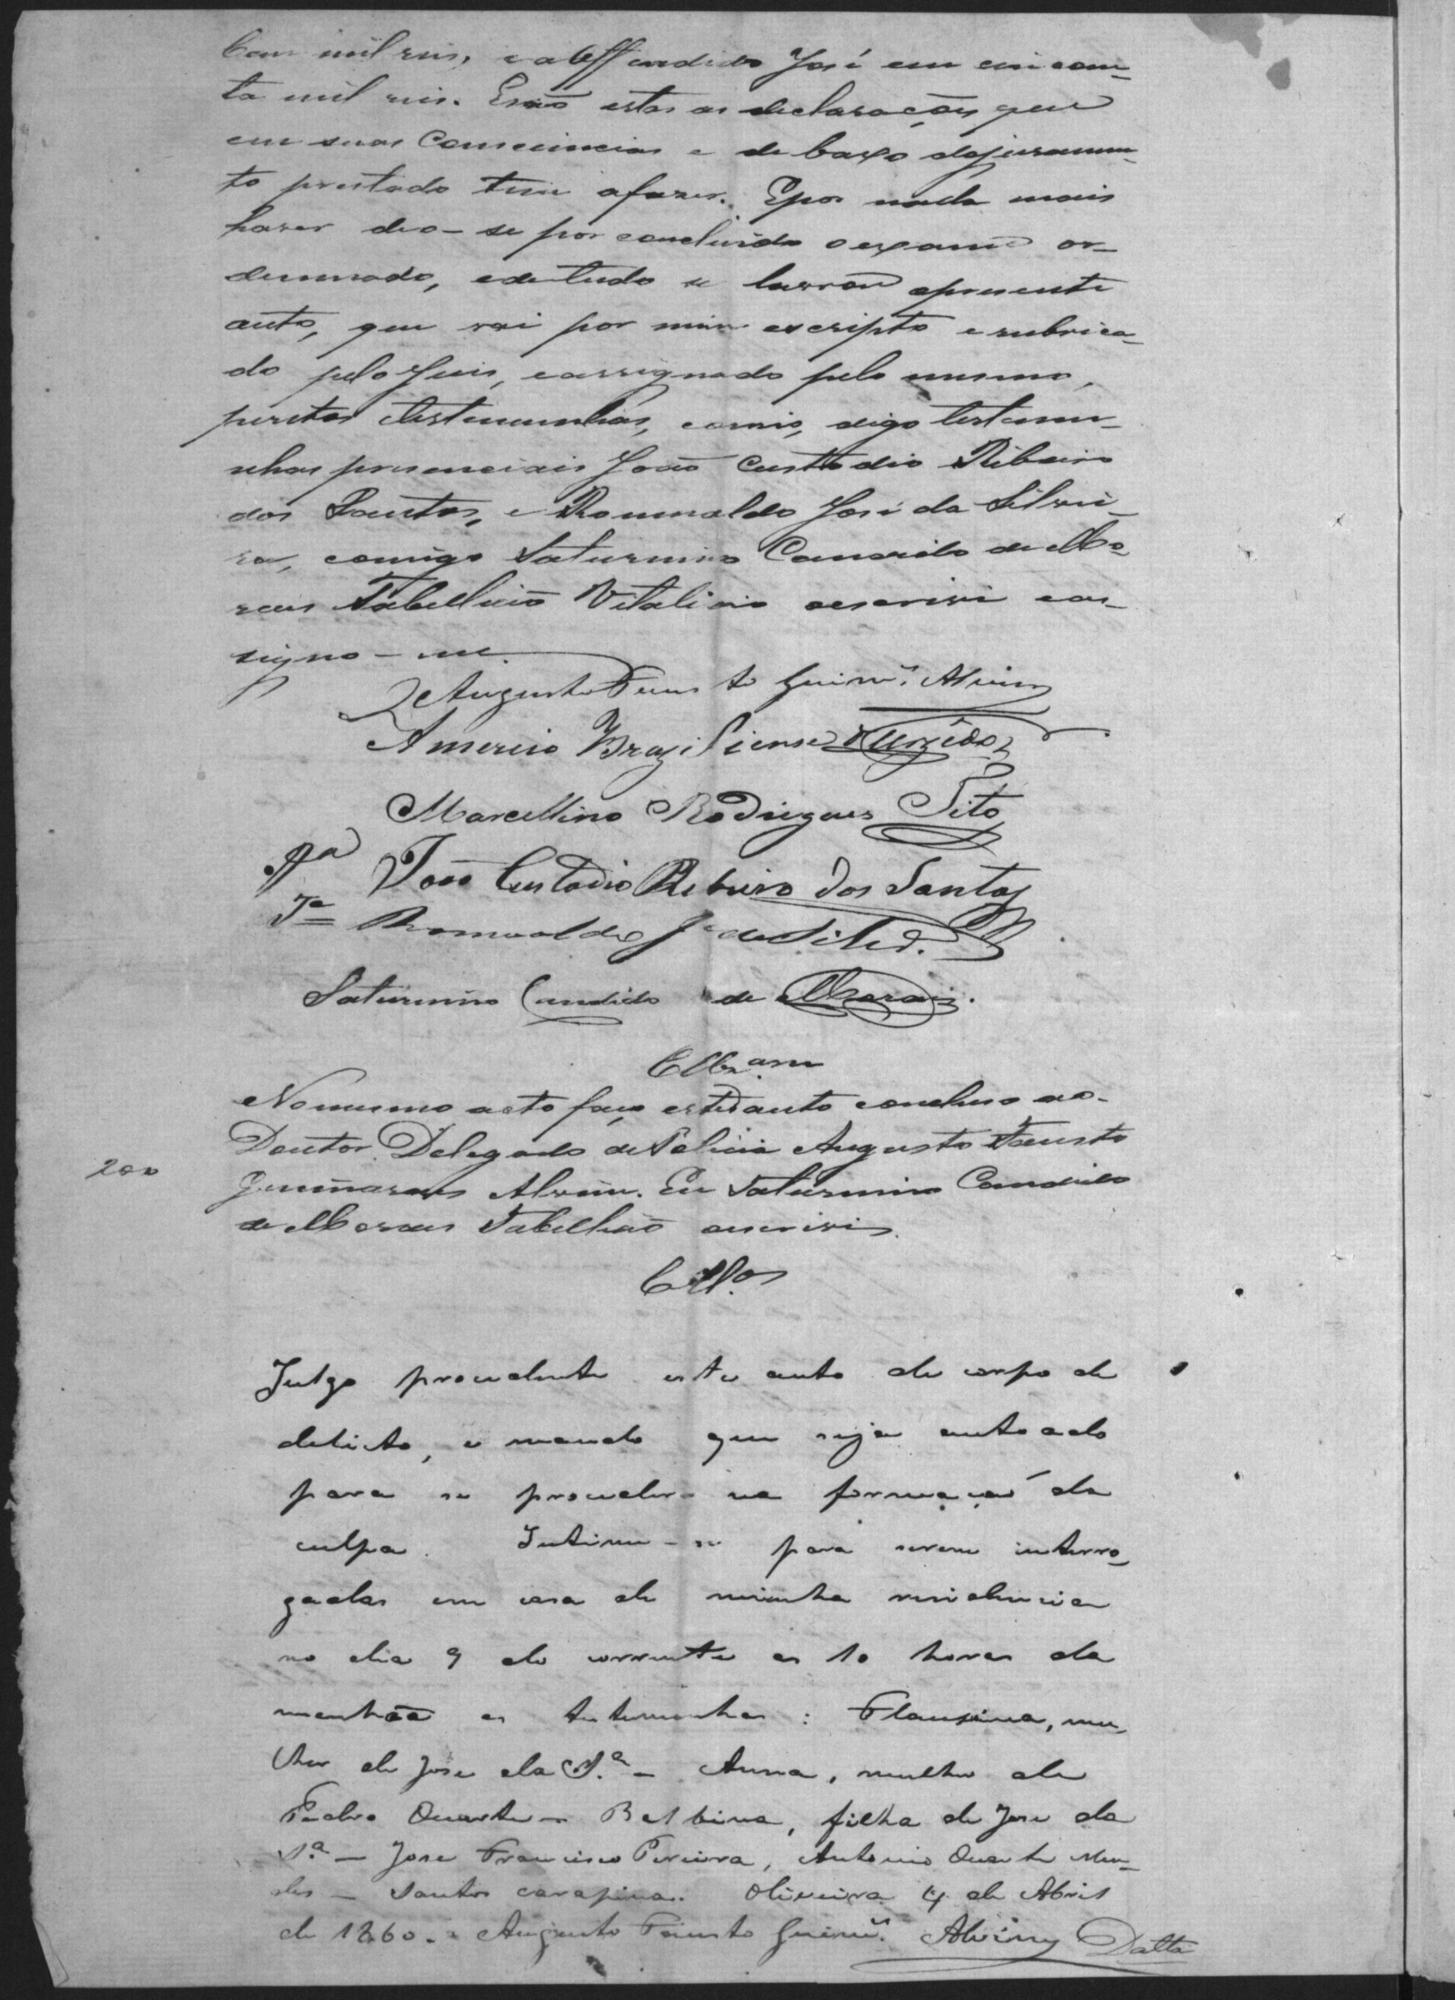 Cem mil reis, e ao offendido José em cincoen-
ta mil reis. E são estas as declarações que
em suas Consciencias e de baxo do juramen-
to prestado tem a fazer. E por nada mais
haver deo-se por concluido o exame or-
denado, e de tudo se lavrou o presente
auto, que vai por mim escripto e rubrica-
do pelo Juis, e assignado pelo mesmo,
peritos e testemunhas, comis, digo testemu-
nhas presenciais João Custodio Ribeiro
dos Santos, e Romualdo José da Silvei-
ra, comigo Saturnino Candido de Mo-
raes Tabellião Vitalicio o escrevi e as-
signo-me.
Augusto Fausto Guimes. Alvim
Americo Braziliense
Marcellino Rodrigues Tito
João Custodio Ribeiro dos Santos
Ta Romualdo Je da Silvra.
Saturnino Candido de Moraes.
Clzam
No mesmo acto faço este auto concluso ao
Doutor Delegado de Policia Augusto Fausto
200
Guimaraes Alvim. Eu Saturnino Candido
de Moraes Tabellião o escrevi.
Cllos
Julgo procedente este auto de corpo de
delicto, e mando que seja autoado
para se proceder na formação da
culpa. Intime-se para serem interro-
gadas em casa de minha residencia
no dia 9 do corrente as 10 horas da
manhaã as testemunhas: Flausina, mu-
lher de Jose da Sa. - Anna, mulher de
Pedro Duarte - Balbina, filha de Jose da
Sa. - Jose Francisco Pereira, Antonio Duarte Men-
des - Santos carapina. Oliveira 4 de Abril
de 1860. Augusto Fausto Guimes. Alvim